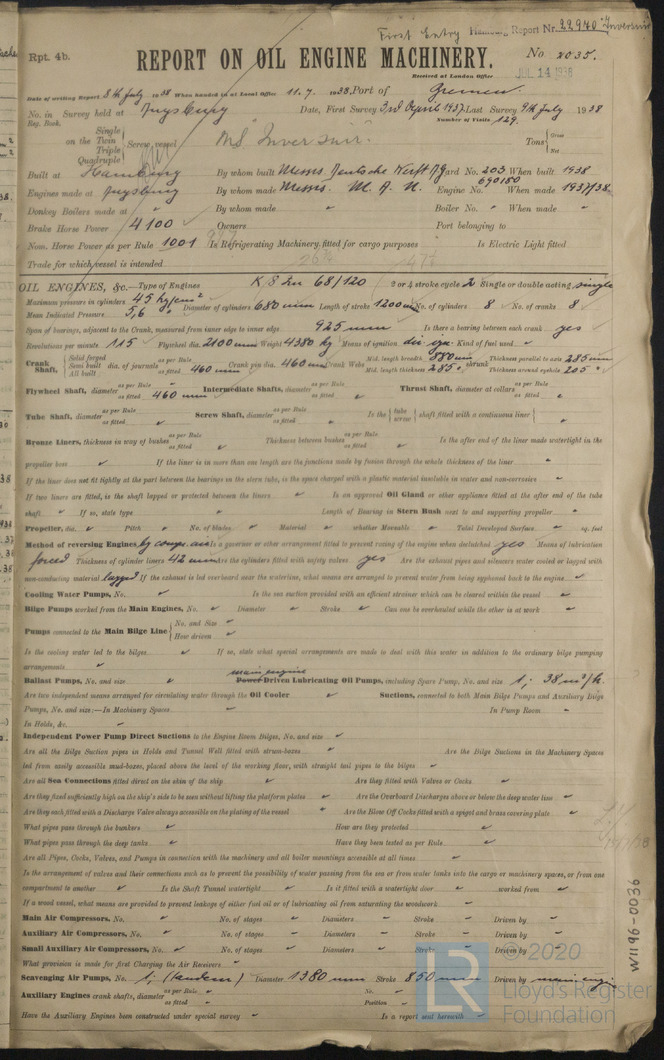 First Entry Hamburg Report Nr. 22940 "Inversuir
Rpt. 4b.
REPORT ON OIL ENGINE MACHINERY.
No 2035.
Received at London Office
JUL 14 1938
Date of writing Report 8th July 1938 When handed in at Local Office 11. 7. 1938. Port of Bremen.
No. in Survey held at Augsburg Date, First Survey 3rd April 1937. Last Survey 9th July 1938
Reg. Book. Number of Visits 129.
on the Single Twin Triple Quadruple Screw vessel MS "Inversuir". Tons Gross Net
Built at Hamburg By whom built Messrs. Deutsche Werft AG Yard No. 203 When built 1938
Engines made at Augsburg By whom made Messrs. M. A. N. Engine No. 690180 When made 1937/38
Donkey Boilers made at " By whom made " Boiler No. " When made "
Brake Horse Power 4100 Owners Port belonging to
Nom. Horse Power as per Rule 1001 Is Refrigerating Machinery fitted for cargo purposes Is Electric Light fitted
Trade for which vessel is intended
OIL ENGINES, &c.—Type of Engines K 8 Zu 68/120 2 or 4 stroke cycle 2 Single or double acting single
Maximum pressure in cylinders 45 kg/cm² Diameter of cylinders 680 mm Length of stroke 1200 mm No. of cylinders 8 No. of cranks 8
Mean Indicated Pressure 5,6 "
Span of bearings, adjacent to the Crank, measured from inner edge to inner edge 925 mm Is there a bearing between each crank yes
Revolutions per minute 115 Flywheel dia. 2100 mm Weight 4380 kg Means of ignition dir. ign. Kind of fuel used
Crank Shaft, Solid forged Semi built All built dia. of journals as per Rule as fitted 460 mm Crank pin dia. 460 mm Crank Webs Mid. length breadth 880 mm Mid. length thickness 285 " shrunk Thickness parallel to axis 285 mm Thickness around eyehole 205 "
Flywheel Shaft, diameter as per Rule as fitted 460 mm Intermediate Shafts, diameter as per Rule as fitted Thrust Shaft, diameter at collars as per Rule as fitted
Tube Shaft, diameter as per Rule as fitted Screw Shaft, diameter as per Rule as fitted Is the tube screw shaft fitted with a continuous liner
Bronze Liners, thickness in way of bushes as per Rule as fitted Thickness between bushes as per Rule as fitted Is the after end of the liner made watertight in the
propeller boss If the liner is in more than one length are the junctions made by fusion through the whole thickness of the liner
If the liner does not fit tightly at the part between the bearings in the stern tube, is the space charged with a plastic material insoluble in water and non-corrosive
If two liners are fitted, is the shaft lapped or protected between the liners Is an approved Oil Gland or other appliance fitted at the after end of the tube
shaft If so, state type Length of Bearing in Stern Bush next to and supporting propeller
Propeller, dia. Pitch No. of blades Material whether Moveable Total Developed Surface sq. feet
Method of reversing Engines by comp. air Is a governor or other arrangement fitted to prevent racing of the engine when declutched yes Means of lubrication
forced Thickness of cylinder liners 42 mm Are the cylinders fitted with safety valves yes Are the exhaust pipes and silencers water cooled or lagged with
non-conducting material lagged If the exhaust is led overboard near the waterline, what means are arranged to prevent water from being syphoned back to the engine
Cooling Water Pumps, No. Is the sea suction provided with an efficient strainer which can be cleared within the vessel
Bilge Pumps worked from the Main Engines, No. Diameter Stroke Can one be overhauled while the other is at work
Pumps connected to the Main Bilge Line No. and Size How driven
Is the cooling water led to the bilges If so, state what special arrangements are made to deal with this water in addition to the ordinary bilge pumping
arrangements
Ballast Pumps, No. and size main engine Power Driven Lubricating Oil Pumps, including Spare Pump, No. and size 1; 38 m³/h.
Are two independent means arranged for circulating water through the Oil Cooler Suctions, connected to both Main Bilge Pumps and Auxiliary Bilge
Pumps, No. and size:—In Machinery Spaces In Pump Room
In Holds, &c.
Independent Power Pump Direct Suctions to the Engine Room Bilges, No. and size
Are all the Bilge Suction pipes in Holds and Tunnel Well fitted with strum-boxes Are the Bilge Suctions in the Machinery Spaces
led from easily accessible mud-boxes, placed above the level of the working floor, with straight tail pipes to the bilges
Are all Sea Connections fitted direct on the skin of the ship Are they fitted with Valves or Cocks
Are they fixed sufficiently high on the ship's side to be seen without lifting the platform plates Are the Overboard Discharges above or below the deep water line
Are they each fitted with a Discharge Valve always accessible on the plating of the vessel Are the Blow Off Cocks fitted with a spigot and brass covering plate
What pipes pass through the bunkers How are they protected
What pipes pass through the deep tanks Have they been tested as per Rule
Are all Pipes, Cocks, Valves, and Pumps in connection with the machinery and all boiler mountings accessible at all times
Is the arrangement of valves and their connections such as to prevent the possibility of water passing from the sea or from water tanks into the cargo or machinery spaces, or from one
compartment to another Is the Shaft Tunnel watertight Is it fitted with a watertight door worked from
If a wood vessel, what means are provided to prevent leakage of either fuel oil or of lubricating oil from saturating the woodwork
Main Air Compressors, No. No. of stages Diameters Stroke Driven by
Auxiliary Air Compressors, No. No. of stages Diameters Stroke Driven by
Small Auxiliary Air Compressors, No. No. of stages Diameters Stroke Driven by
What provision is made for first Charging the Air Receivers
Scavenging Air Pumps, No. 1; (tandem) Diameter 1380 mm Stroke 850 mm Driven by main engin
Auxiliary Engines crank shafts, diameter as per Rule as fitted No. Position
Have the Auxiliary Engines been constructed under special survey Is a report sent herewith
W1196-0036
© 2020
LR
Lloyd's Register
Foundation